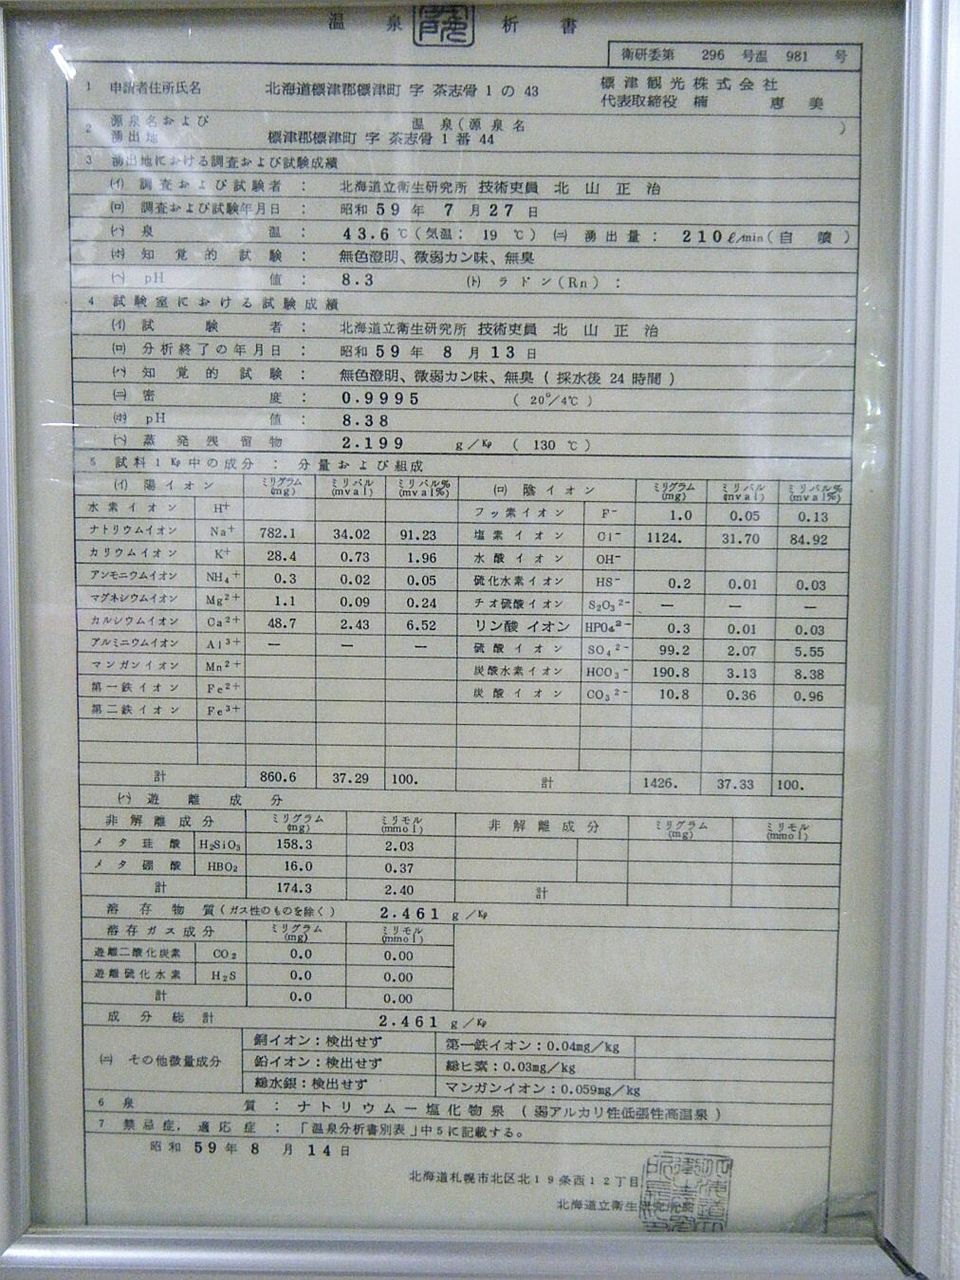 温泉 析書
衛研委第 296 号温 981 号
1 申請者住所氏名 北海道標津郡標津町 字 茶志骨1の43 標津観光株式会社
代表取締役 楠 恵美
2 源泉名および 温泉(源泉名 )
湧出地 標津郡標津町 字 茶志骨1番44
3 湧出地における調査および試験成績
(イ) 調査および試験者 : 北海道立衛生研究所 技術吏員 北山正治
(ロ) 調査および試験年月日 : 昭和59年7月27日
(ハ) 泉温 : 43.6℃(気温: 19℃) (ニ) 湧出量 : 210ℓ/min(自噴)
(ホ) 知覚的試験 : 無色澄明、微弱カン味、無臭
(ヘ) pH値 : 8.3 (ト) ラドン(Rn) :
4 試験室における試験成績
(イ) 試験者 : 北海道立衛生研究所 技術吏員 北山正治
(ロ) 分析終了の年月日 : 昭和59年8月13日
(ハ) 知覚的試験 : 無色澄明、微弱カン味、無臭(採水後24時間)
(ニ) 密度 : 0.9995 (20°/4℃)
(ホ) pH値 : 8.38
(ヘ) 蒸発残留物 2.199 g/Kg (130℃)
5 試料1Kg中の成分 : 分量および組成
(イ) 陽イオン ミリグラム(mg) ミリバル(mval) ミリバル%(mval%) (ロ) 陰イオン ミリグラム(mg) ミリバル(mval) ミリバル%(mval%)
水素イオン H+ フッ素イオン F- 1.0 0.05 0.13
ナトリウムイオン Na+ 782.1 34.02 91.23 塩素イオン Cl- 1124. 31.70 84.92
カリウムイオン K+ 28.4 0.73 1.96 水酸イオン OH-
アンモニウムイオン NH4+ 0.3 0.02 0.05 硫化水素イオン HS- 0.2 0.01 0.03
マグネシウムイオン Mg2+ 1.1 0.09 0.24 チオ硫酸イオン S2O3 2- — — —
カルシウムイオン Ca2+ 48.7 2.43 6.52 リン酸イオン HPO4 2- 0.3 0.01 0.03
アルミニウムイオン Al3+ — — — 硫酸イオン SO4 2- 99.2 2.07 5.55
マンガンイオン Mn2+ 炭酸水素イオン HCO3- 190.8 3.13 8.38
第一鉄イオン Fe2+ 炭酸イオン CO3 2- 10.8 0.36 0.96
第二鉄イオン Fe3+
計 860.6 37.29 100. 計 1426. 37.33 100.
(ハ) 遊離成分
非解離成分 ミリグラム(mg) ミリモル(mmol) 非解離成分 ミリグラム(mg) ミリモル(mmol)
メタ珪酸 H2SiO3 158.3 2.03
メタ硼酸 HBO2 16.0 0.37
計 174.3 2.40 計
溶存物質(ガス性のものを除く) 2.461 g/Kg
溶存ガス成分 ミリグラム(mg) ミリモル(mmol)
遊離二酸化炭素 CO2 0.0 0.00
遊離硫化水素 H2S 0.0 0.00
計 0.0 0.00
成分総計 2.461 g/Kg
(ニ) その他微量成分 銅イオン:検出せず 第一鉄イオン:0.04mg/kg
鉛イオン:検出せず 総ヒ素:0.03mg/kg
総水銀:検出せず マンガンイオン:0.059mg/kg
6 泉質 : ナトリウム-塩化物泉(弱アルカリ性低張性高温泉)
7 禁忌症,適応症 : 「温泉分析書別表」中5に記載する。
昭和59年8月14日
北海道札幌市北区北19条西12丁目
北海道立衛生